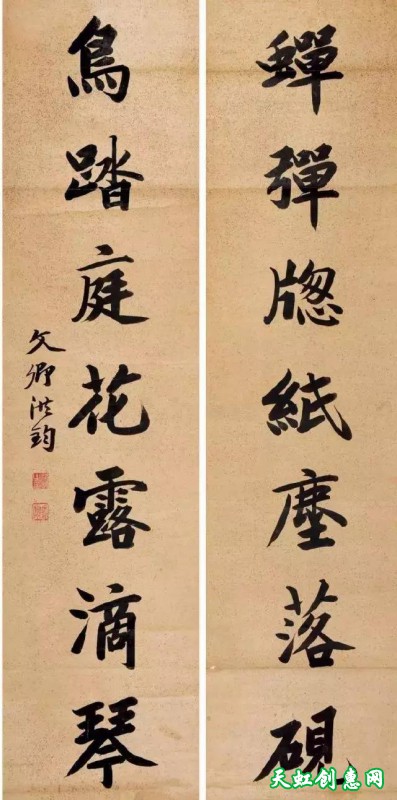 蟬彈牕紙塵落硯
鳥踏庭花露滴琴
文卿洪鈞
天虹创惠网